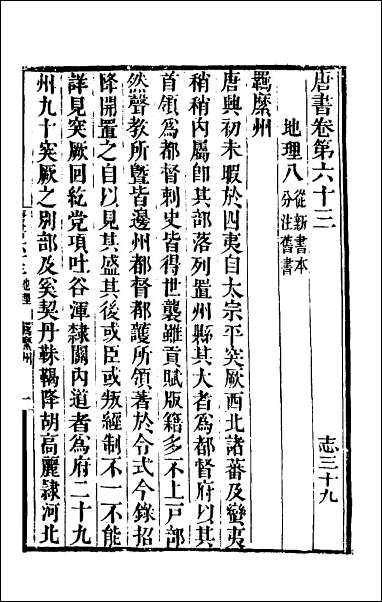 唐書卷第六十三
志三十九
地理八 從新書本
分注舊書
羈縻州
唐興初未暇於四夷自太宗平突厥西北諸蕃及蠻夷
稍稍內屬卽其部落列置州縣其大者爲都督府以其
首領爲都督刺史皆得世襲雖貢賦版籍多不上戶部
然聲教所曁皆邊州都督都護所領著於令式今錄招
降開置之自以見其盛其後或臣或叛經制不一不能
詳見突厥回紇党項吐谷渾隸關內道者爲府二十九
州九十突厥之別部及奚契丹靺鞨降胡高麗隷河北
地理 羈縻州 一